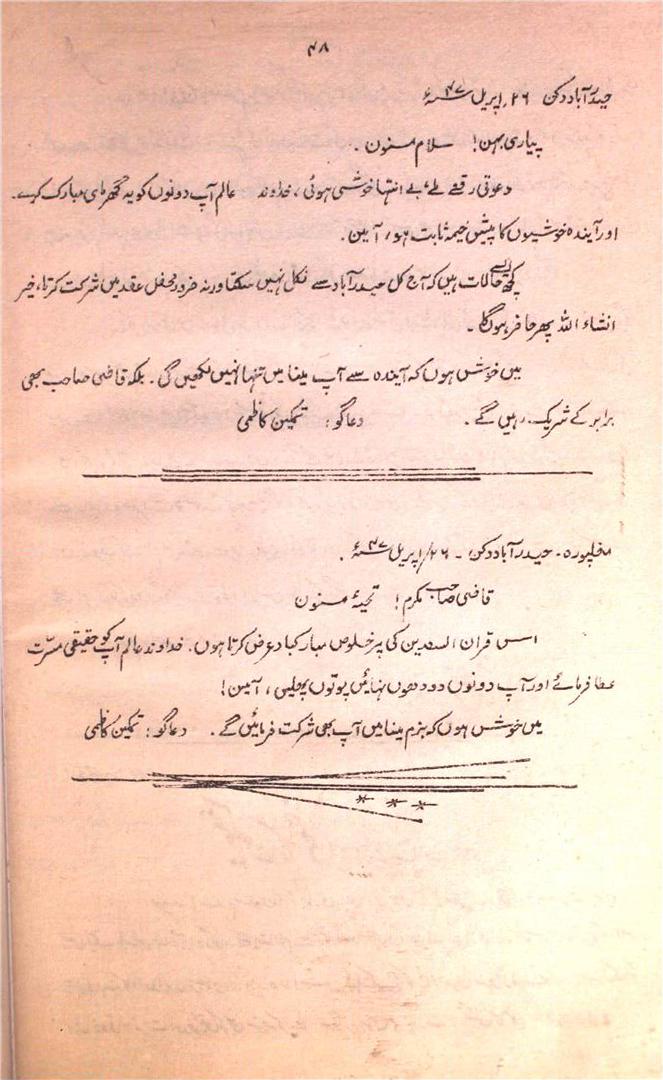 ۴۸
حیدرآباد دکن ۲۶؍ اپریل ۴۷ء
پیاری بہن! سلام مسنون ۔
دعوتی رقعے ملے، بے انتہا خوشی ہوئی، خداوند عالم آپ دونوں کو یہ گھڑی مبارک کرے۔
اور آیندہ خوشیوں کا پیش خیمہ ثابت ہو، آمین۔
کچھ ایسے حالات ہیں کہ آج کل حیدرآباد سے نکل نہیں سکتا ورنہ ضرور محفل عقد میں شرکت کرتا، خیر
انشاء اللہ پھر حاضر ہوں گا ۔
میں خوش ہوں کہ آیندہ سے آپ مینا میں تنہا نہیں لکھیں گی۔ بلکہ قاضی صاحب بھی
برابر کے شریک رہیں گے ۔ دعاگو: تمکین کاظمی
مغلپورہ۔ حیدرآباد دکن ۔ ۲۶/ اپریل ۴۷ء ۔
قاضی صاحب مکرم! تحیۂ مسنون
اس قران السعدین کی پرخلوص مبارکباد عرض کرتا ہوں۔ خداوند عالم آپ کو حقیقی مسرّت
عطا فرمائے اور آپ دونوں دودھوں نہائیں پوتوں پھلیں، آمین!
میں خوش ہوں کہ بزم مینا میں آپ بھی شرکت فرمائیں گے ۔ دعاگو: تمکین کاظمی